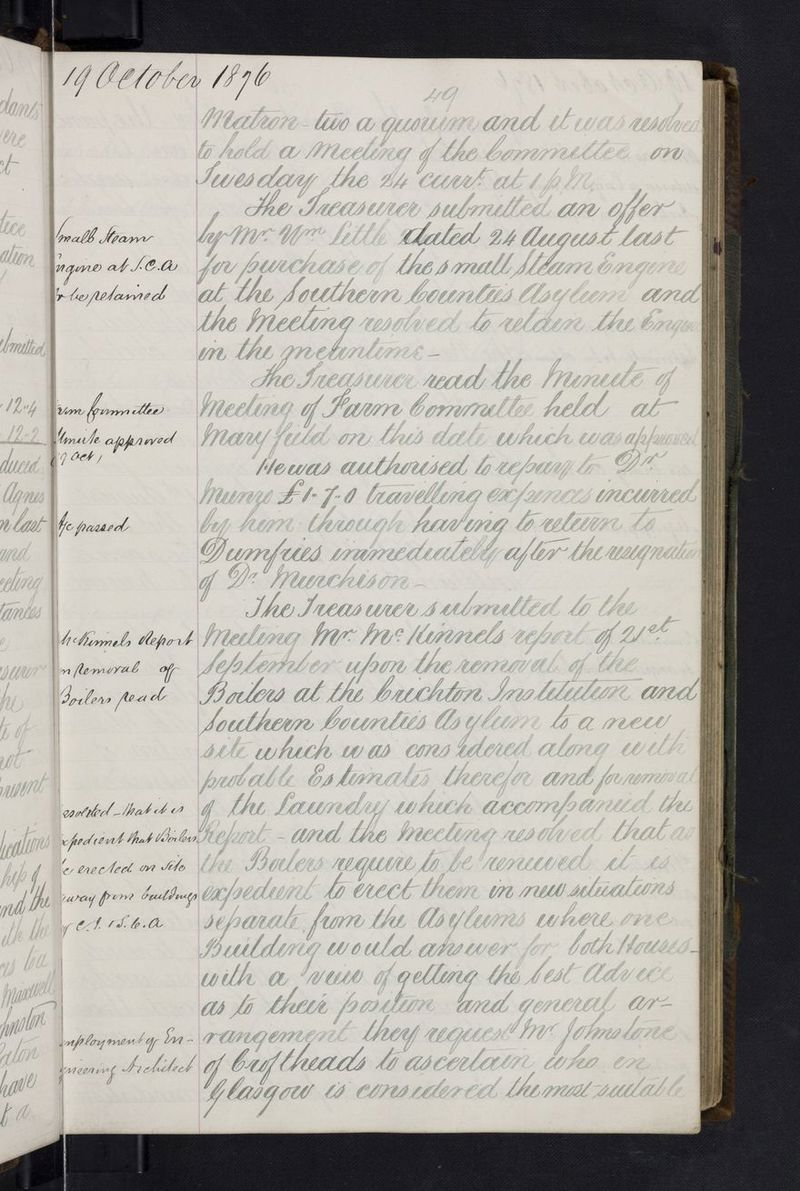 19 October 1876
49
Matron - two a quorum and it was resolved
to hold a Meeting of the Committee on
Tuesday the 24 currt. at 1 p.M.
The Treasurer submitted an offer
Small Steam
by Mr. Wm Little dated 24 August last
Engine at S.C.A
for purchase of the small Steam Engine
to be retained
at the Southern Counties Asylum and
the Meeting resolved to retain the Engine
in the meantime -
The Treasurer read the Minute of
Farm Committee
Meeting of Farm Committee held at
Minute approved
Maryfield on this date which was approved
19 Oct,
He was authorised to repay to Dr.
Munro £1-7-0 travelling expences incurred
a/c passed
by him through having to return to
Dumfries immediately after the resignation
of Dr. Murchison -
The Treasurer submitted to the
McKinnels Report
Meeting Mr. McKinnels report of 21st
on Removal of
September upon the removal of the
Boilers read
Boilers at the Crichton Institution and
Southern Counties Asylum to a new
site which was considered along with
probable Estimates therefor and for removal
resolved - that it is
of the Laundry which accompanied the
expedient that Boilers
Report - and the Meeting resolved that as
be erected on site
the Boilers require to be renewed it is
away from buildings
expedient to erect them in new situations
of C.I. & S.C.A
separate from the Asylums where one
Building would answer for both Houses -
with a view of getting the best Advice
as to their position and general ar-
Employment of En-
rangement they request Mr. Johnstone
gineering Architect
of Croftheads to ascertain who in
Glasgow is considered the most suitable